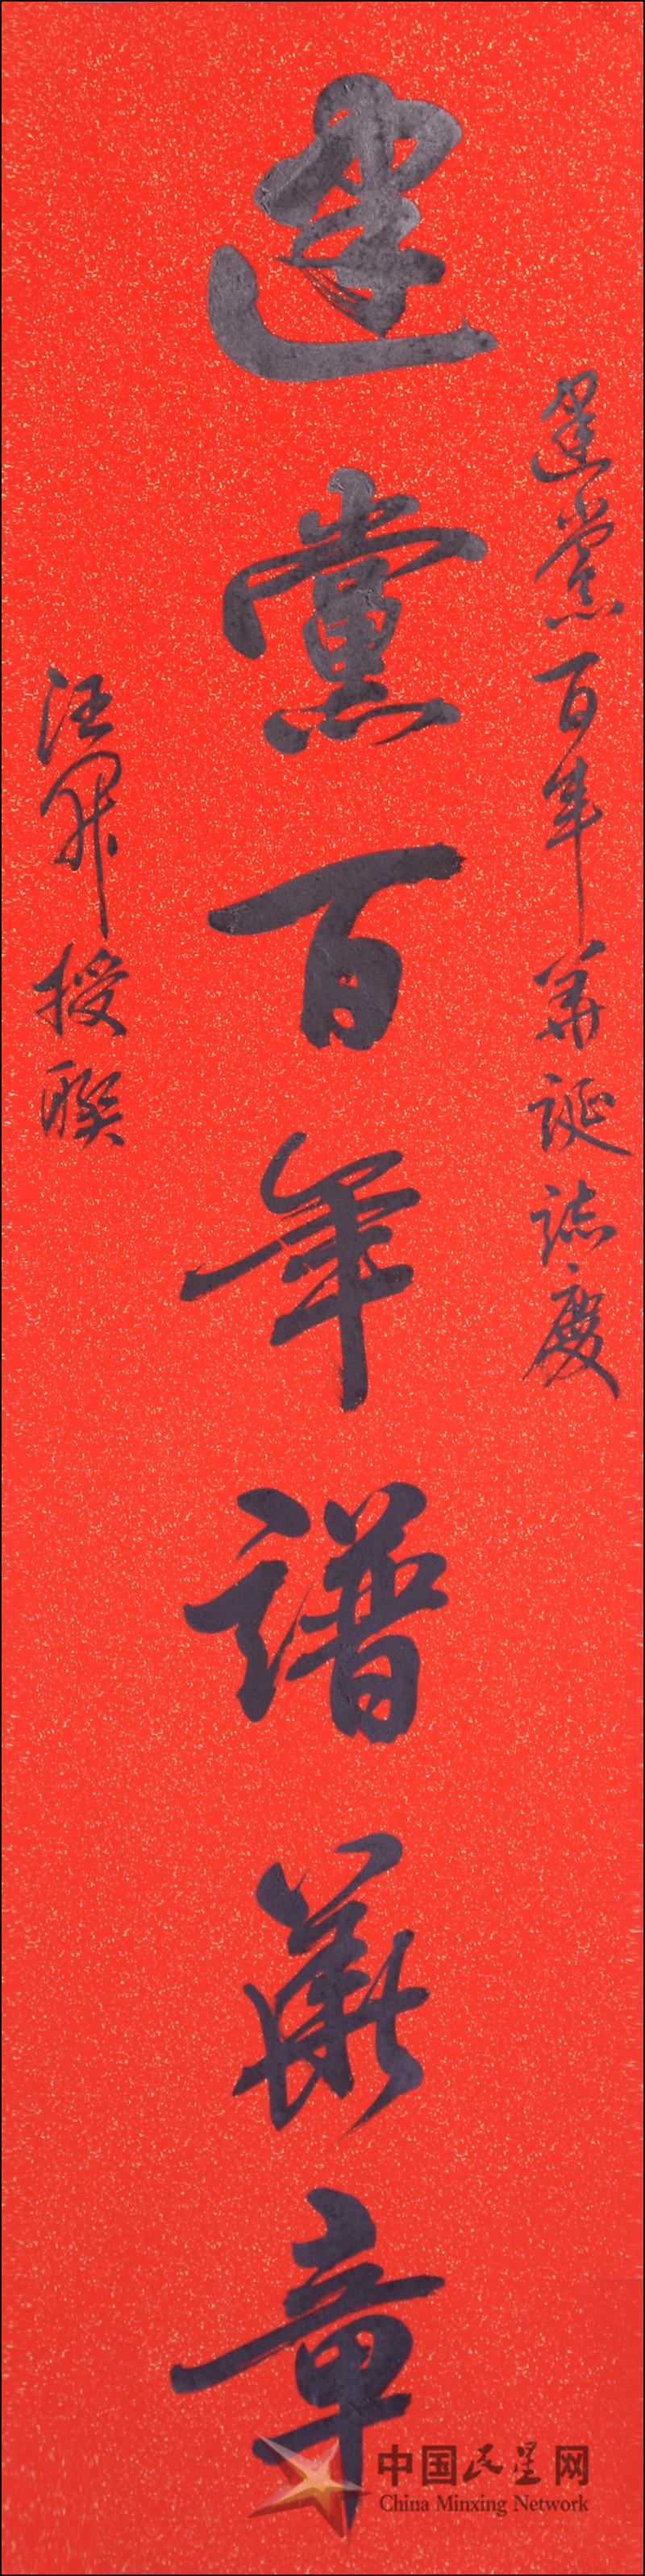 建黨百年華誕誌慶
建黨百年譜華章
汪 授聯
中国民星网
China Minxing Network